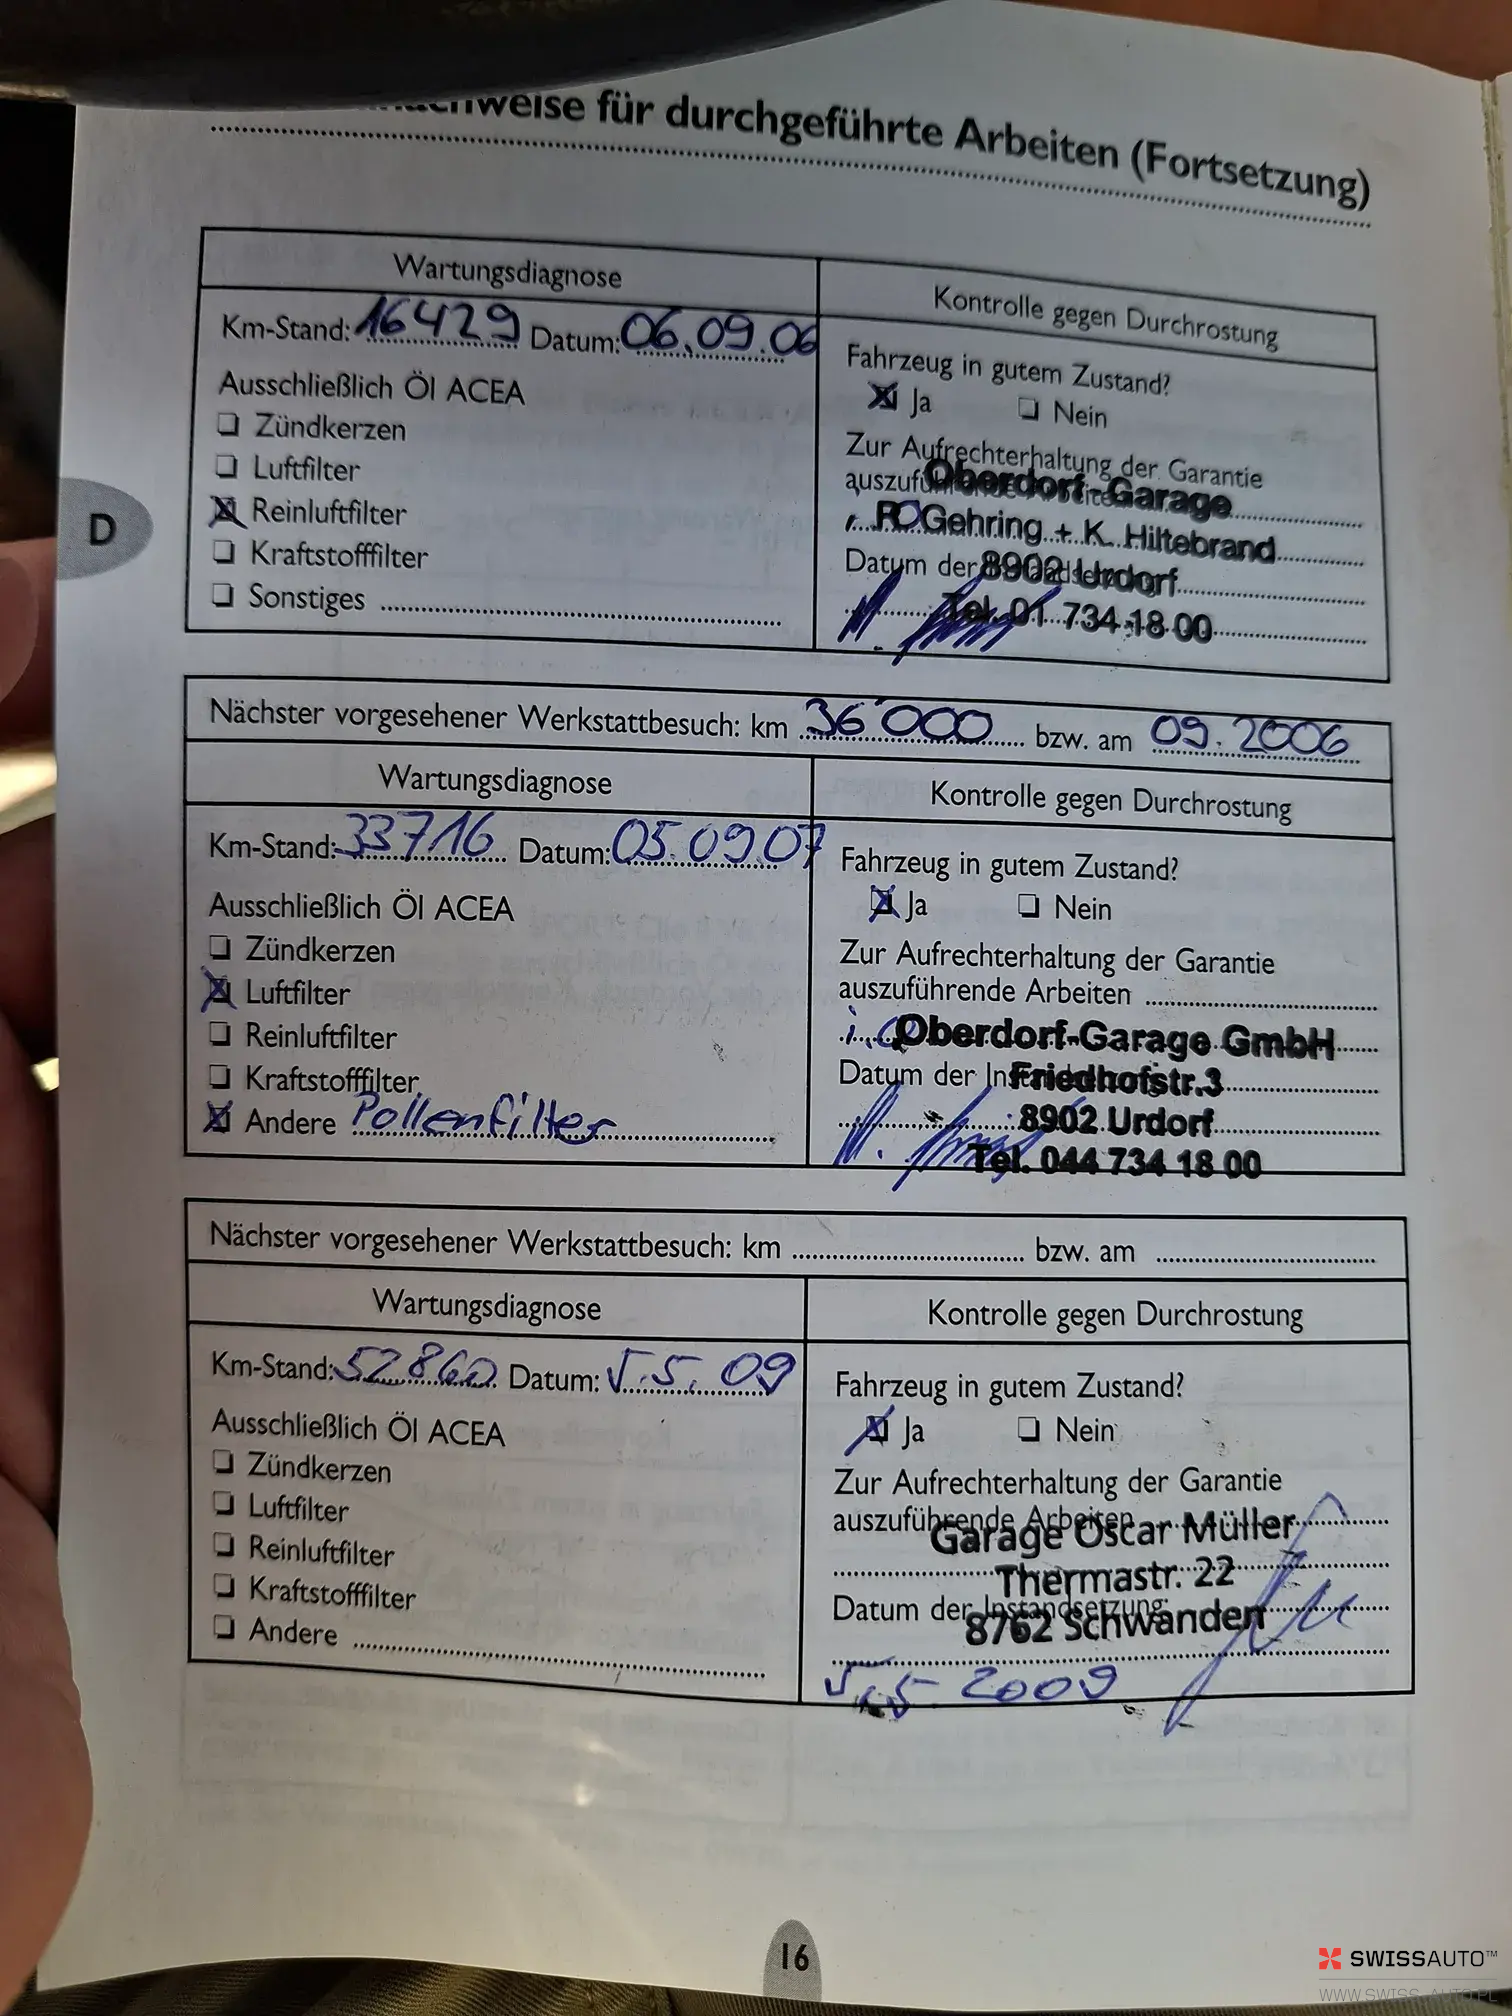 nachweise für durchgeführte Arbeiten (Fortsetzung)
Wartungsdiagnose
Km-Stand: 16429 Datum: 06.09.06
Ausschließlich Öl ACEA
Zündkerzen
Luftfilter
Reinluftfilter
Kraftstofffilter
Sonstiges
Kontrolle gegen Durchrostung
Fahrzeug in gutem Zustand?
Ja Nein
Zur Aufrechterhaltung der Garantie
Oberdorf-Garage
Gehring + K. Hiltebrand
Datum der
8902 Urdorf
Tel. 01 734 18 00
D
Nächster vorgesehener Werkstattbesuch: km 36'000 bzw. am 09.2006
Wartungsdiagnose
Km-Stand: 33716 Datum: 05.09.07
Ausschließlich Öl ACEA
Zündkerzen
Luftfilter
Reinluftfilter
Kraftstofffilter
Andere Pollenfilter
Kontrolle gegen Durchrostung
Fahrzeug in gutem Zustand?
Ja Nein
Zur Aufrechterhaltung der Garantie
auszuführende Arbeiten
i.O.
Oberdorf-Garage GmbH
Datum der
Friedhofstr.3
8902 Urdorf
Tel. 044 734 18 00
Nächster vorgesehener Werkstattbesuch: km bzw. am
Wartungsdiagnose
Km-Stand: 52860 Datum: 5.5.09
Ausschließlich Öl ACEA
Zündkerzen
Luftfilter
Reinluftfilter
Kraftstofffilter
Andere
Kontrolle gegen Durchrostung
Fahrzeug in gutem Zustand?
Ja Nein
Zur Aufrechterhaltung der Garantie
auszuführende Arbeiten
Garage Oscar Müller
Thermastr. 22
Datum der Instandsetzung:
8762 Schwanden
5.5.2009
16
SWISSAUTO™
WWW.SWISS-AUTO.PL